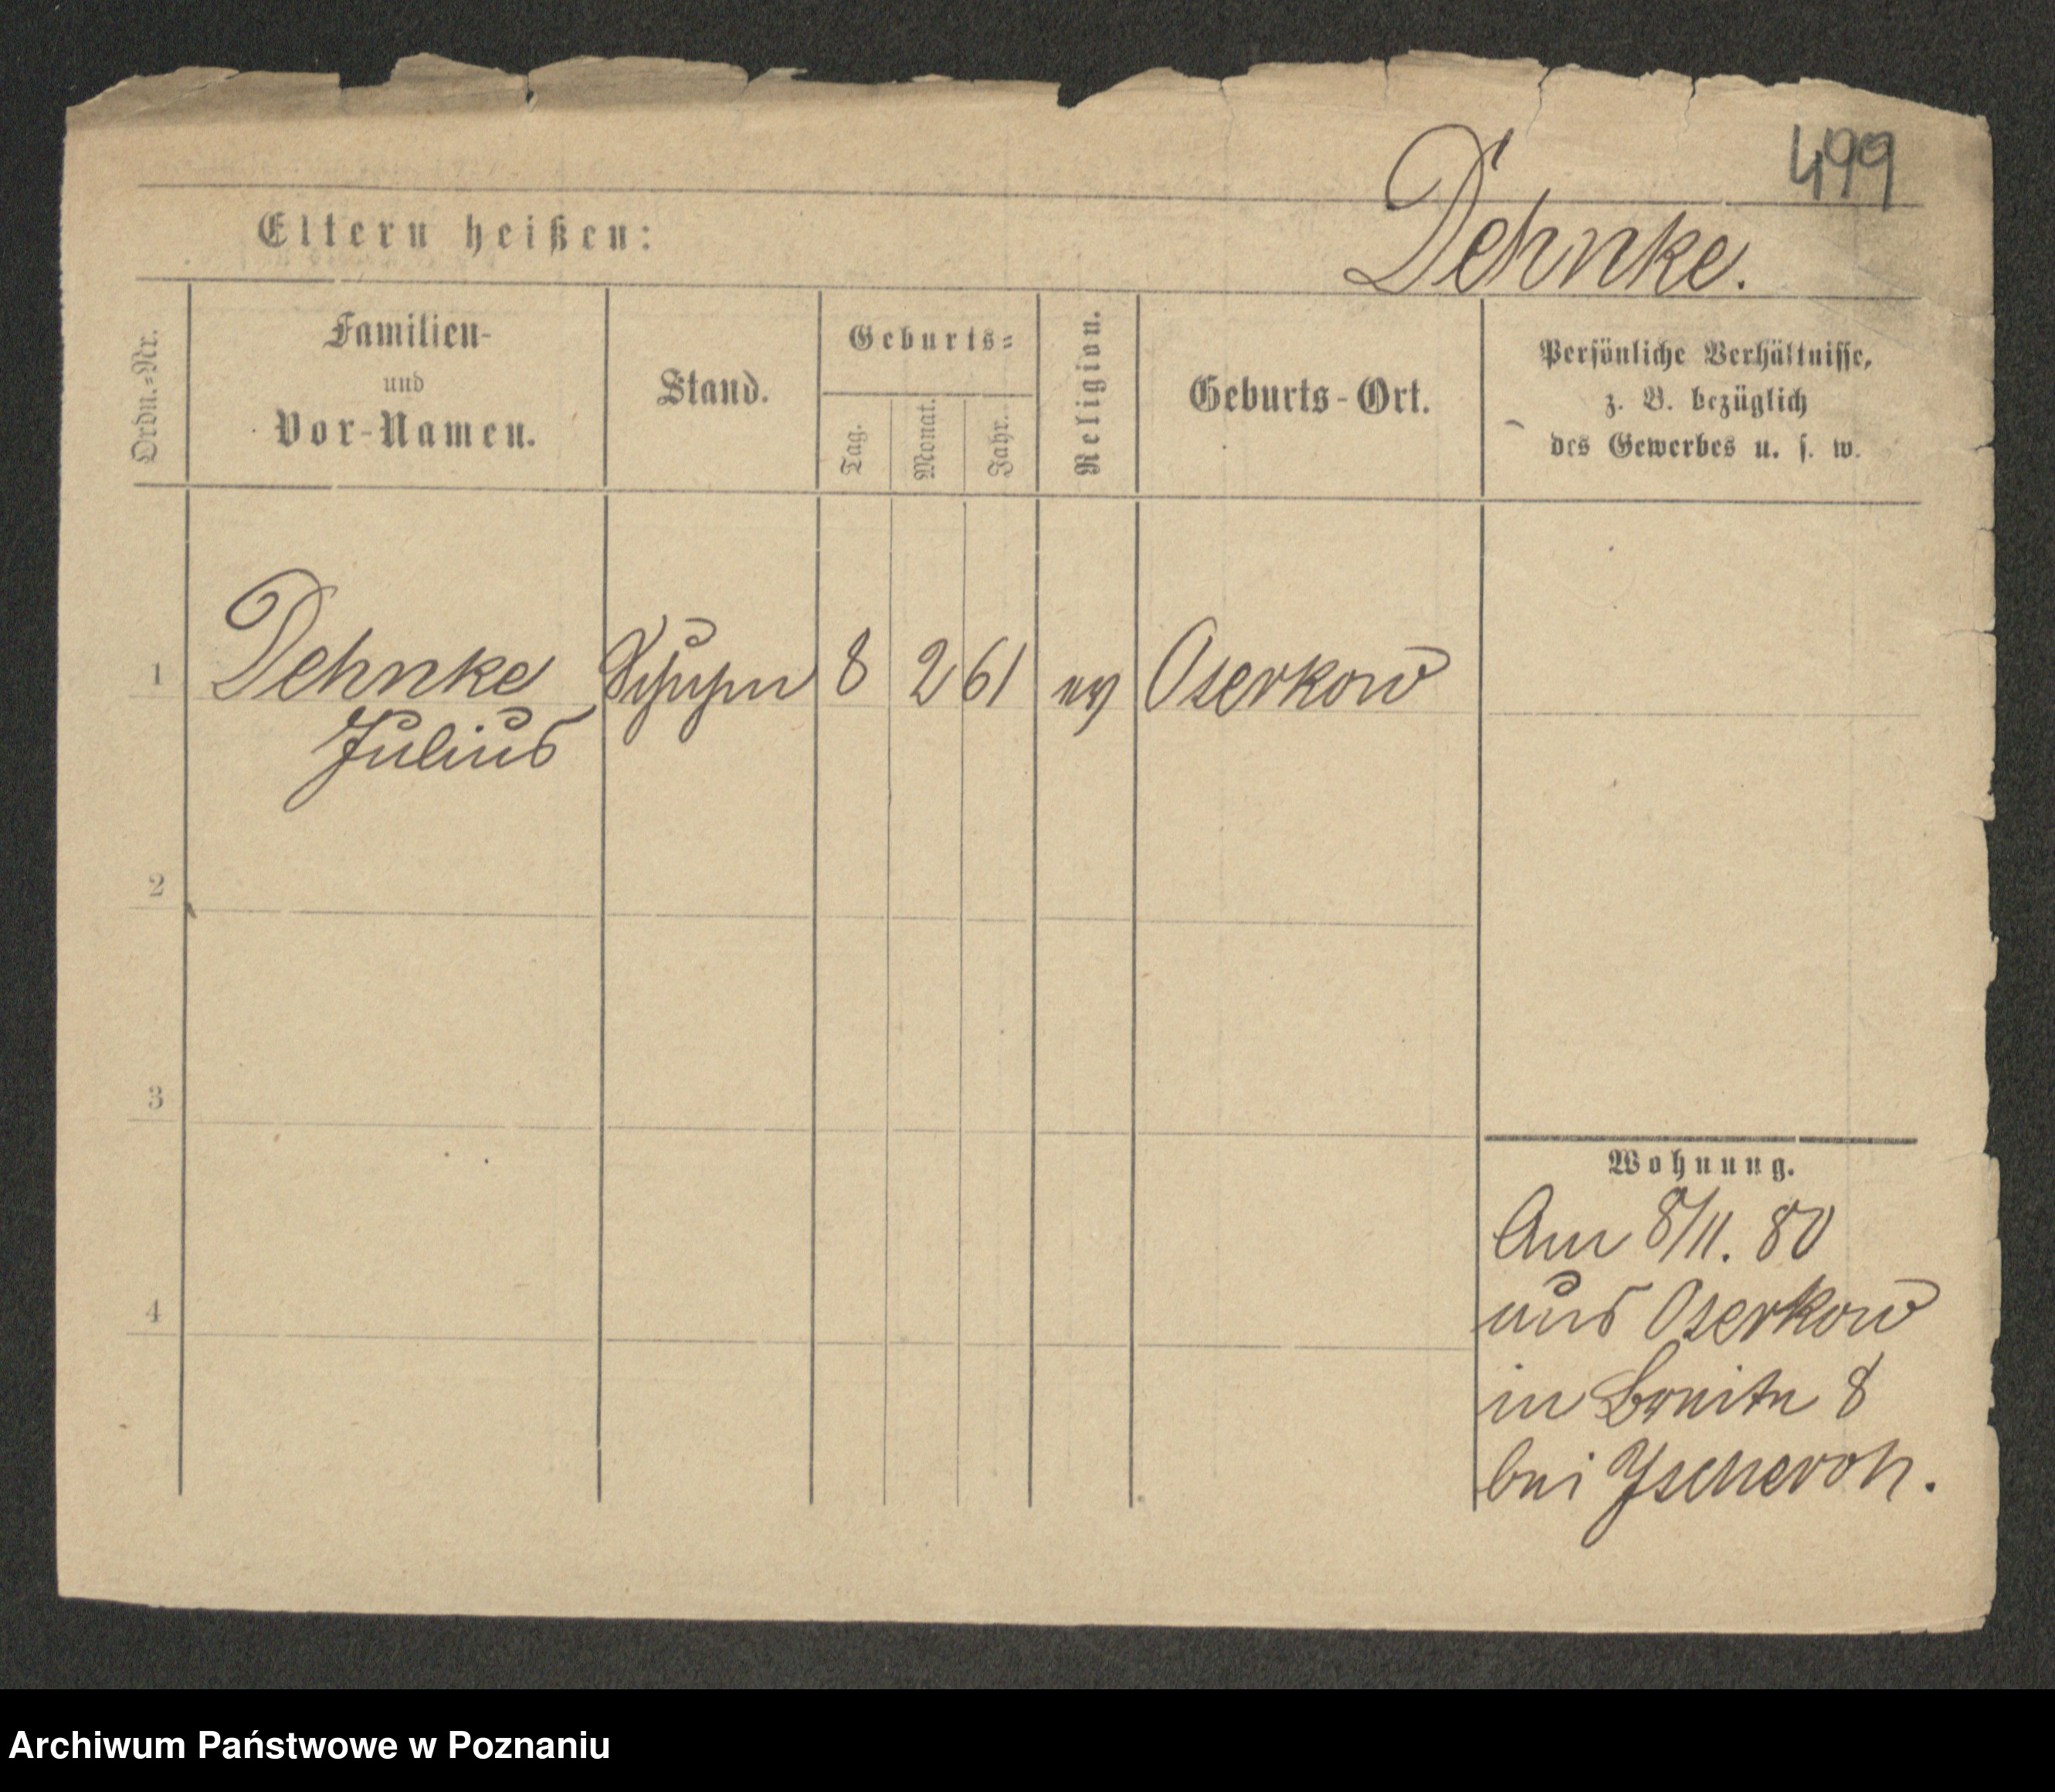 499
Dehnke.
Eltern heißen:
Ordn.-Nr.
Familien-
und
Vor-Namen.
Stand.
Geburts-
Tag.
Monat.
Jahr.
Religion.
Geburts-Ort.
Persönliche Verhältnisse,
z. B. bezüglich
des Gewerbes u. s. w.
1 Dehnke 8 2 61 ev Oserkow
Julius
2
3
4
Wohnung.
Am 8/11. 80
aus Oserkow
in 8
bei
Archiwum Państwowe w Poznaniu